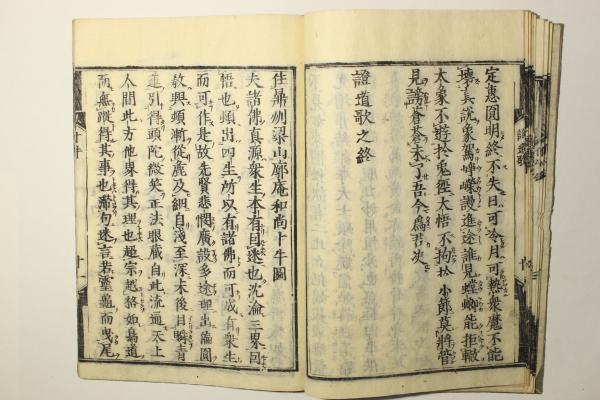 定惠圓明終不失日可冷月可熱衆魔不能
壞真說象駕崢嶸謾進途誰見螳螂能拒轍
大象不遊於兔徑大悟不拘於小節莫將管
見謗蒼蒼未了吾今為君决
證道歌之終
住鼎州梁山廓庵和尚十牛圖
夫諸佛真源衆生本有因迷也沉淪三界因
悟也頓出四生所以有諸佛而可成有衆生
而可作是故先賢悲憫廣設多途理出偏圓
教興頓漸從麁及細自淺至深末後目瞬青
蓮引得頭陀微笑正法眼藏自此流通天上
人間此方他界得其理也超宗越格如鳥道
而無蹤得其事也滯句迷言若靈龜而曳尾
十牛
十一
證道歌